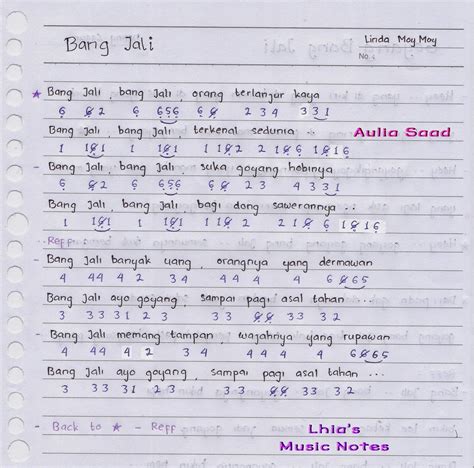 Bang Jali
Linda Moy Moy
No.:
★ Bang Jali, bang Jali, orang terlanjur kaya
6 662 6 656 66 2 3 4 3 3 1
Bang Jali, bang Jali, terkenal sedunia
Aulia Saad
1 161 1 161 1 162 2 216 1616
- Bang Jali, bang Jali, suka goyang hobinya
6 662 6 656 66 2 3 4 3 3 1
Bang Jali, bang Jali bagi dong sawerannya ..
1 161 1 161 1 162 2 216 1616
- Reff:
- Bang Jali banyak uang, orangnya yang dermawan
4 44 42 34 44 4 4 6665
Bang Jali ayo goyang, sampai pagi asal tahan
3 33 31 23 33 66 33 32
- Bang Jali memang tampan wajahnya yang rupawan
4 44 42 34 44 4 4 6665
Bang Jali ayo goyang, sampai pagi asal tahan ...
3 33 31 23 33 66 33 32
- Back to ★ - Reff
Lhia's
Music Notes